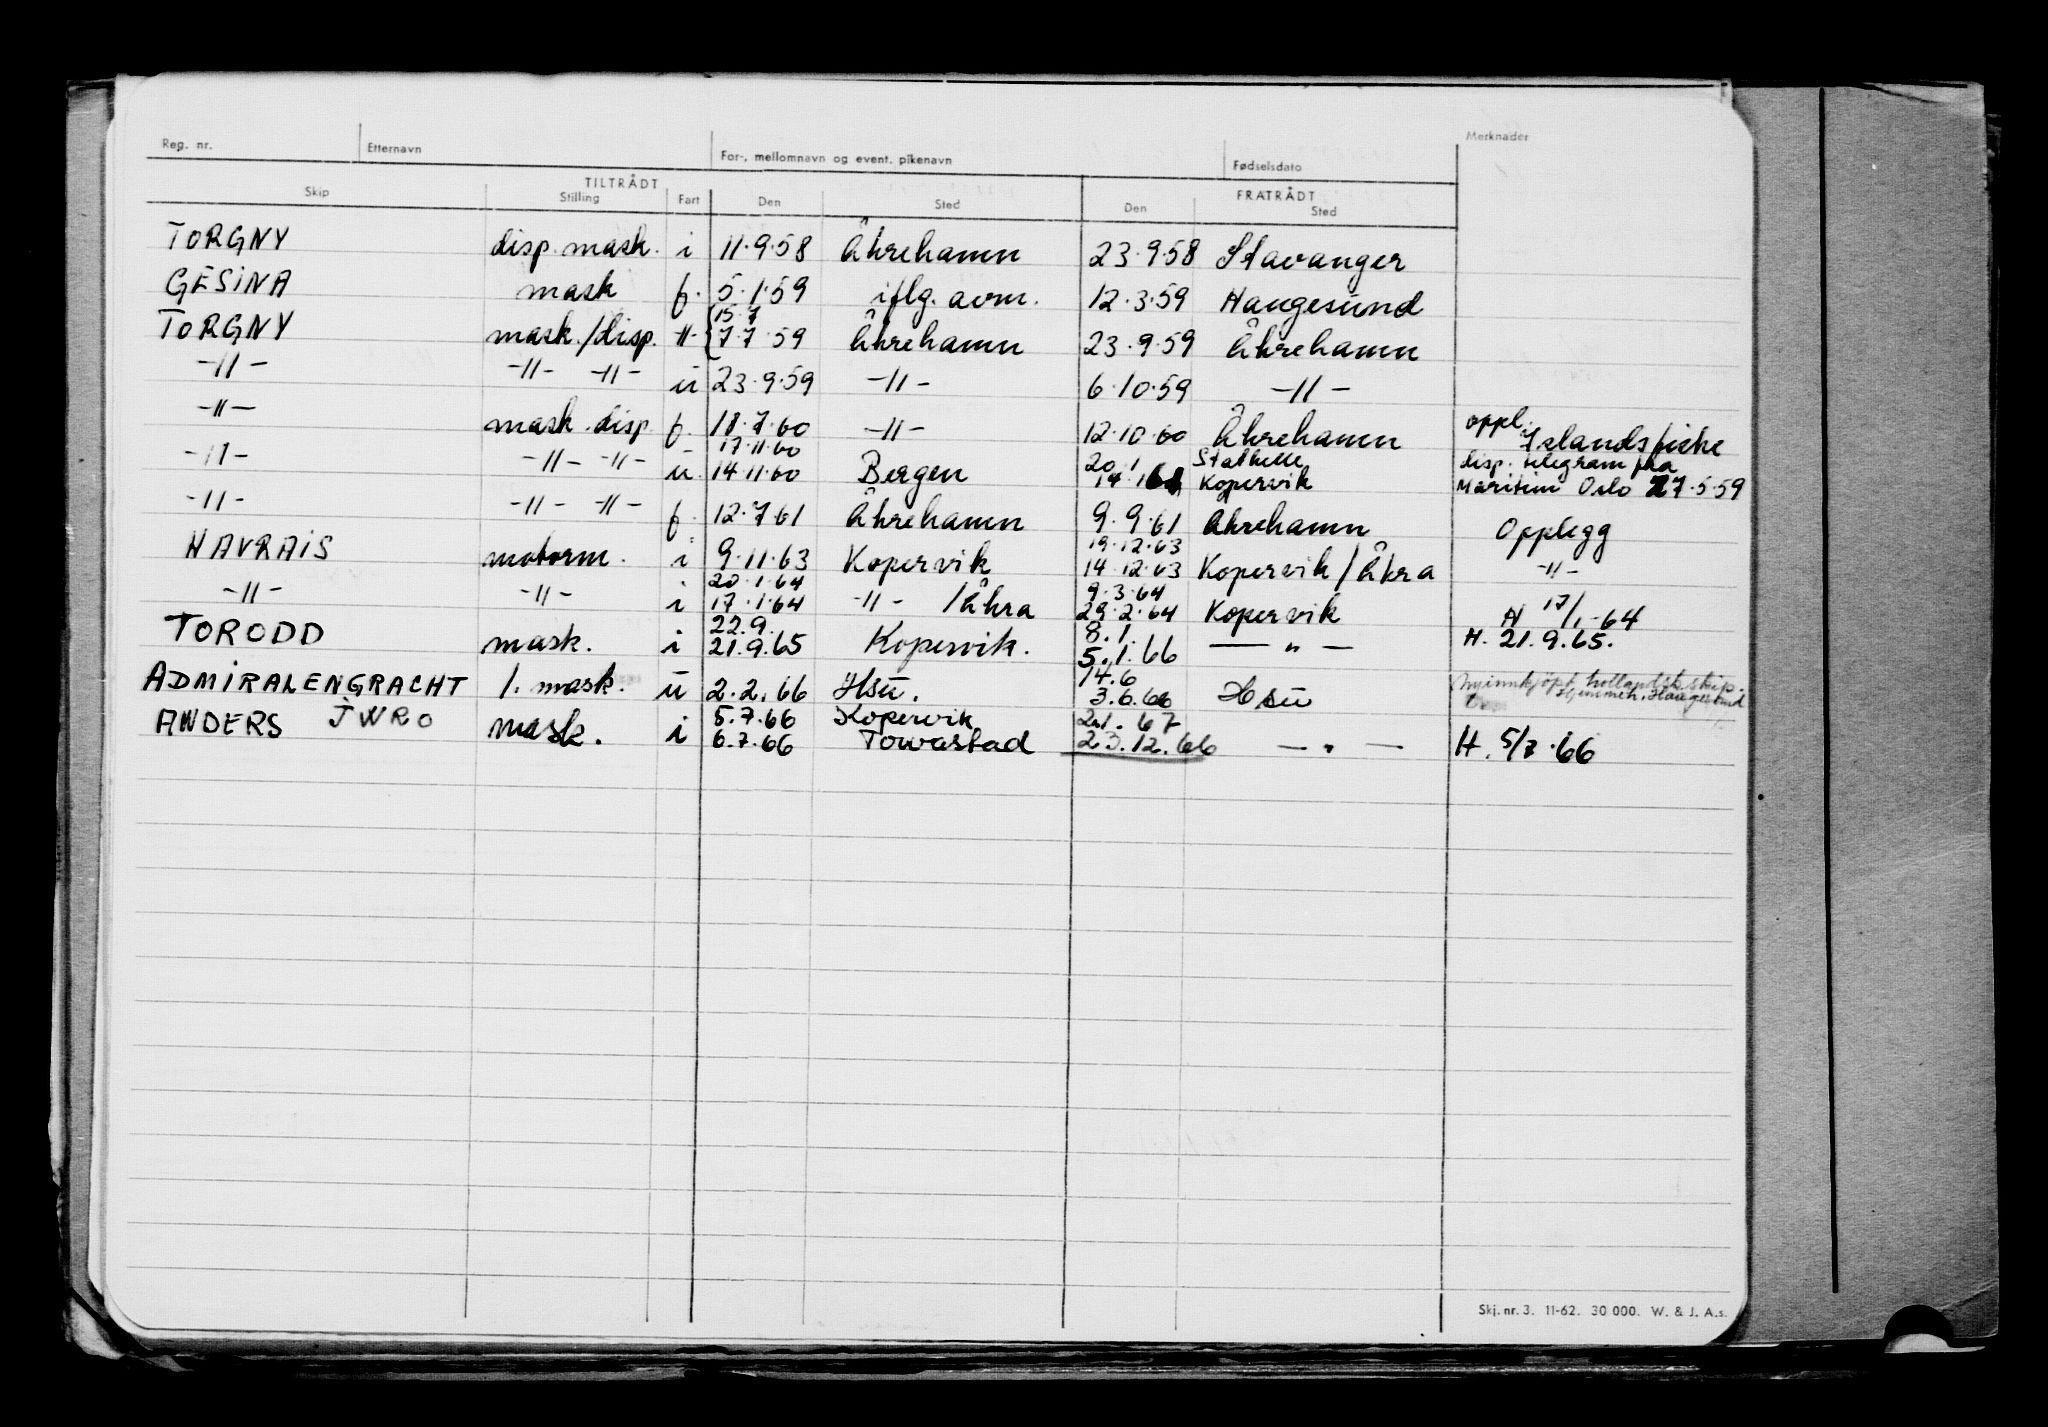 Reg. nr. Etternavn For-, mellomnavn og event. pikenavn Fødselsdato Merknader
TILTRÅDT FRATRÅDT
Skip Stilling Fart Den Sted Den Sted
TORGNY disp. mask. i 11.9.58 Åkrehamn 23.9.58 Stavanger
GESINA mask f. 5.1.59 iflg. avm. 12.3.59 Haugesund
15.7
TORGNY mask./disp. -"- 7.7.59 Åkrehamn 23.9.59 Åkrehamn
-"- -"- -"- u 23.9.59 -"- 6.10.59 -"-
-"- mask.disp f. 18.7.60 -"- 12.10.60 Åkrehamn oppl. Islandsfiske
17.11.60 20.1 Stathelle disp. telegram fra
-"- -"- -"- u. 14.11.60 Bergen 14.1.61 Kopervik Maritim Oslo 27.5.59
-"- -"- -"- f. 12.7.61 Åkrehamn 9.9.61 Åkrehamn Opplegg
19.12.63
HAVRAIS motorm. i 9.11.63 Kopervik 14.12.63 Kopervik/Åkra -"-
20.1.64 9.3.64
-"- -"- i 17.1.64 -"- /Åkra 29.2.64 Kopervik H 17/1-64
22.9. 8.1.
TORODD mask. i 21.9.65 Kopervik. 5.1.66 — " — H. 21.9.65.
14.6 hollandsk skip.
ADMIRALENGRACHT 1. mask. u 2.2.66 Hsu. 3.6.66 Hsu Haugesund
5.7.66 Kopervik 2.1.67
ANDERS JWRO mask. i 6.7.66 Torvastad 23.12.66 — " — H. 5/7.66
Skj. nr. 3. 11-62. 30 000. W. & J. A.s.